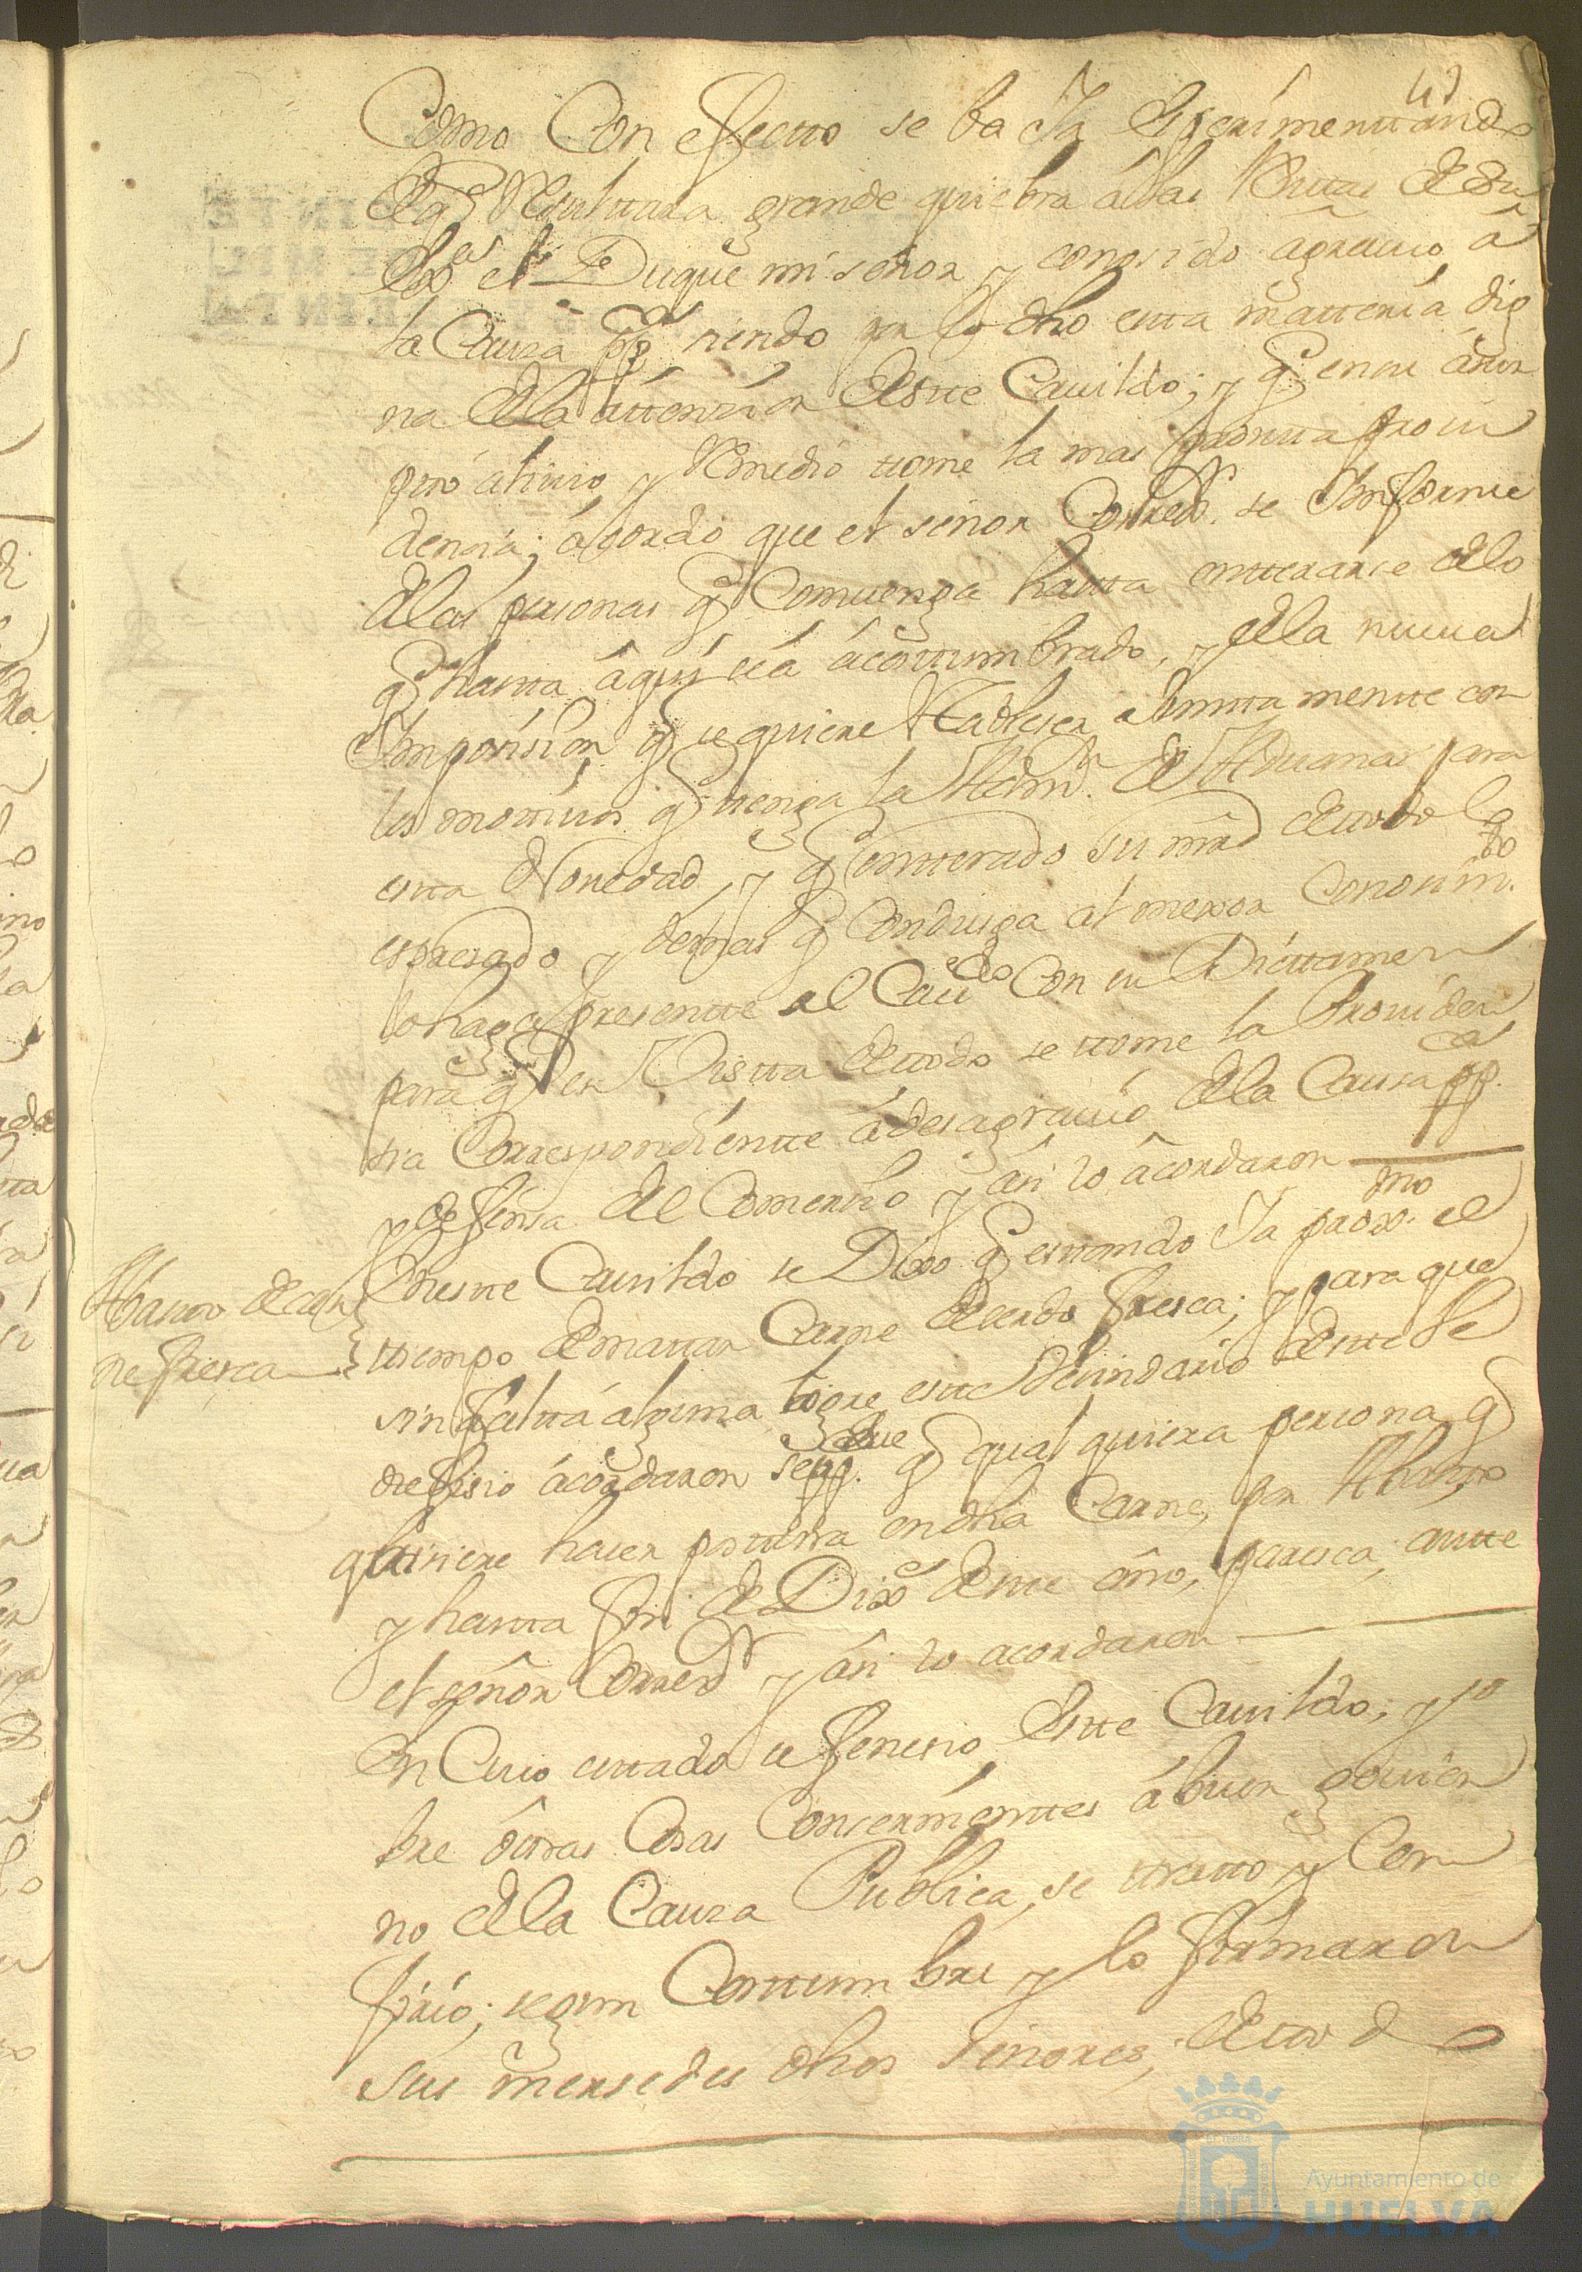 41
Como Con efectto se ba Ya Experimenttando
de q̃ Resulttara grande quiebra á las Renttas de Su
Ex.ª el Duque mi señor y conosido agrauio â
la Causa pp.ª siendo por lo dho estta matteria dig
na de la áttension de estte Cauildo; y q̃ en su ásun
pto aliuio y Remedio ttome la mas prontta proui
densia; ácordo que el señor Corred.r se Ynforme
de las personas q̃ Comuenga hastta entterarse de lo
q̃ hastta áqui sea ácosttumbrado, y de la nueua
Ymposision q̃ se quiere Stableser Junttamentte con
los mottiuos q̃ ttenga la Adm.n de Aduanas para
estta Nouedad, y q̃ entterado su mrd de ttodo lo
espresado y demas q̃ Condusga al mexor Conosim.to
lo haga presentte al Cau.do Con su Dicttamen
para q̃ en Vistta de ttodo se ttome la Prouiden
sia Correspondientte á desagrauio de la Causa pp.ca
y defensa del Comersio y ási lo âcordaron
Abastto de car
ne fresca
En estte Cauildo se Dixo q̃ esttando Ya prox.mo el
ttiempo de mattar Carne de cerdo fresca; y para que
sin faltta álguna logre estte Vesindario de estte Be
nefisio ácordaron se pp.que q̃ qualquiera persona q̃
quisiere haser posttura en dha Carne, por Abastto
y hastta fin de Dix.e de estte año, paresca, antte
el señor Corred.r y âsi lo acordaron
En Cuio esttado se fenesio Estte Cauildo; y so
bre ôttras Cosas Consernienttes á buen gouier
no de la Causa Publica, se ttratto y Con
firio; segun Costtumbre y lo firmaron
sus mersedes dhos señores, de ttod
Ayuntamiento de
HUELVA